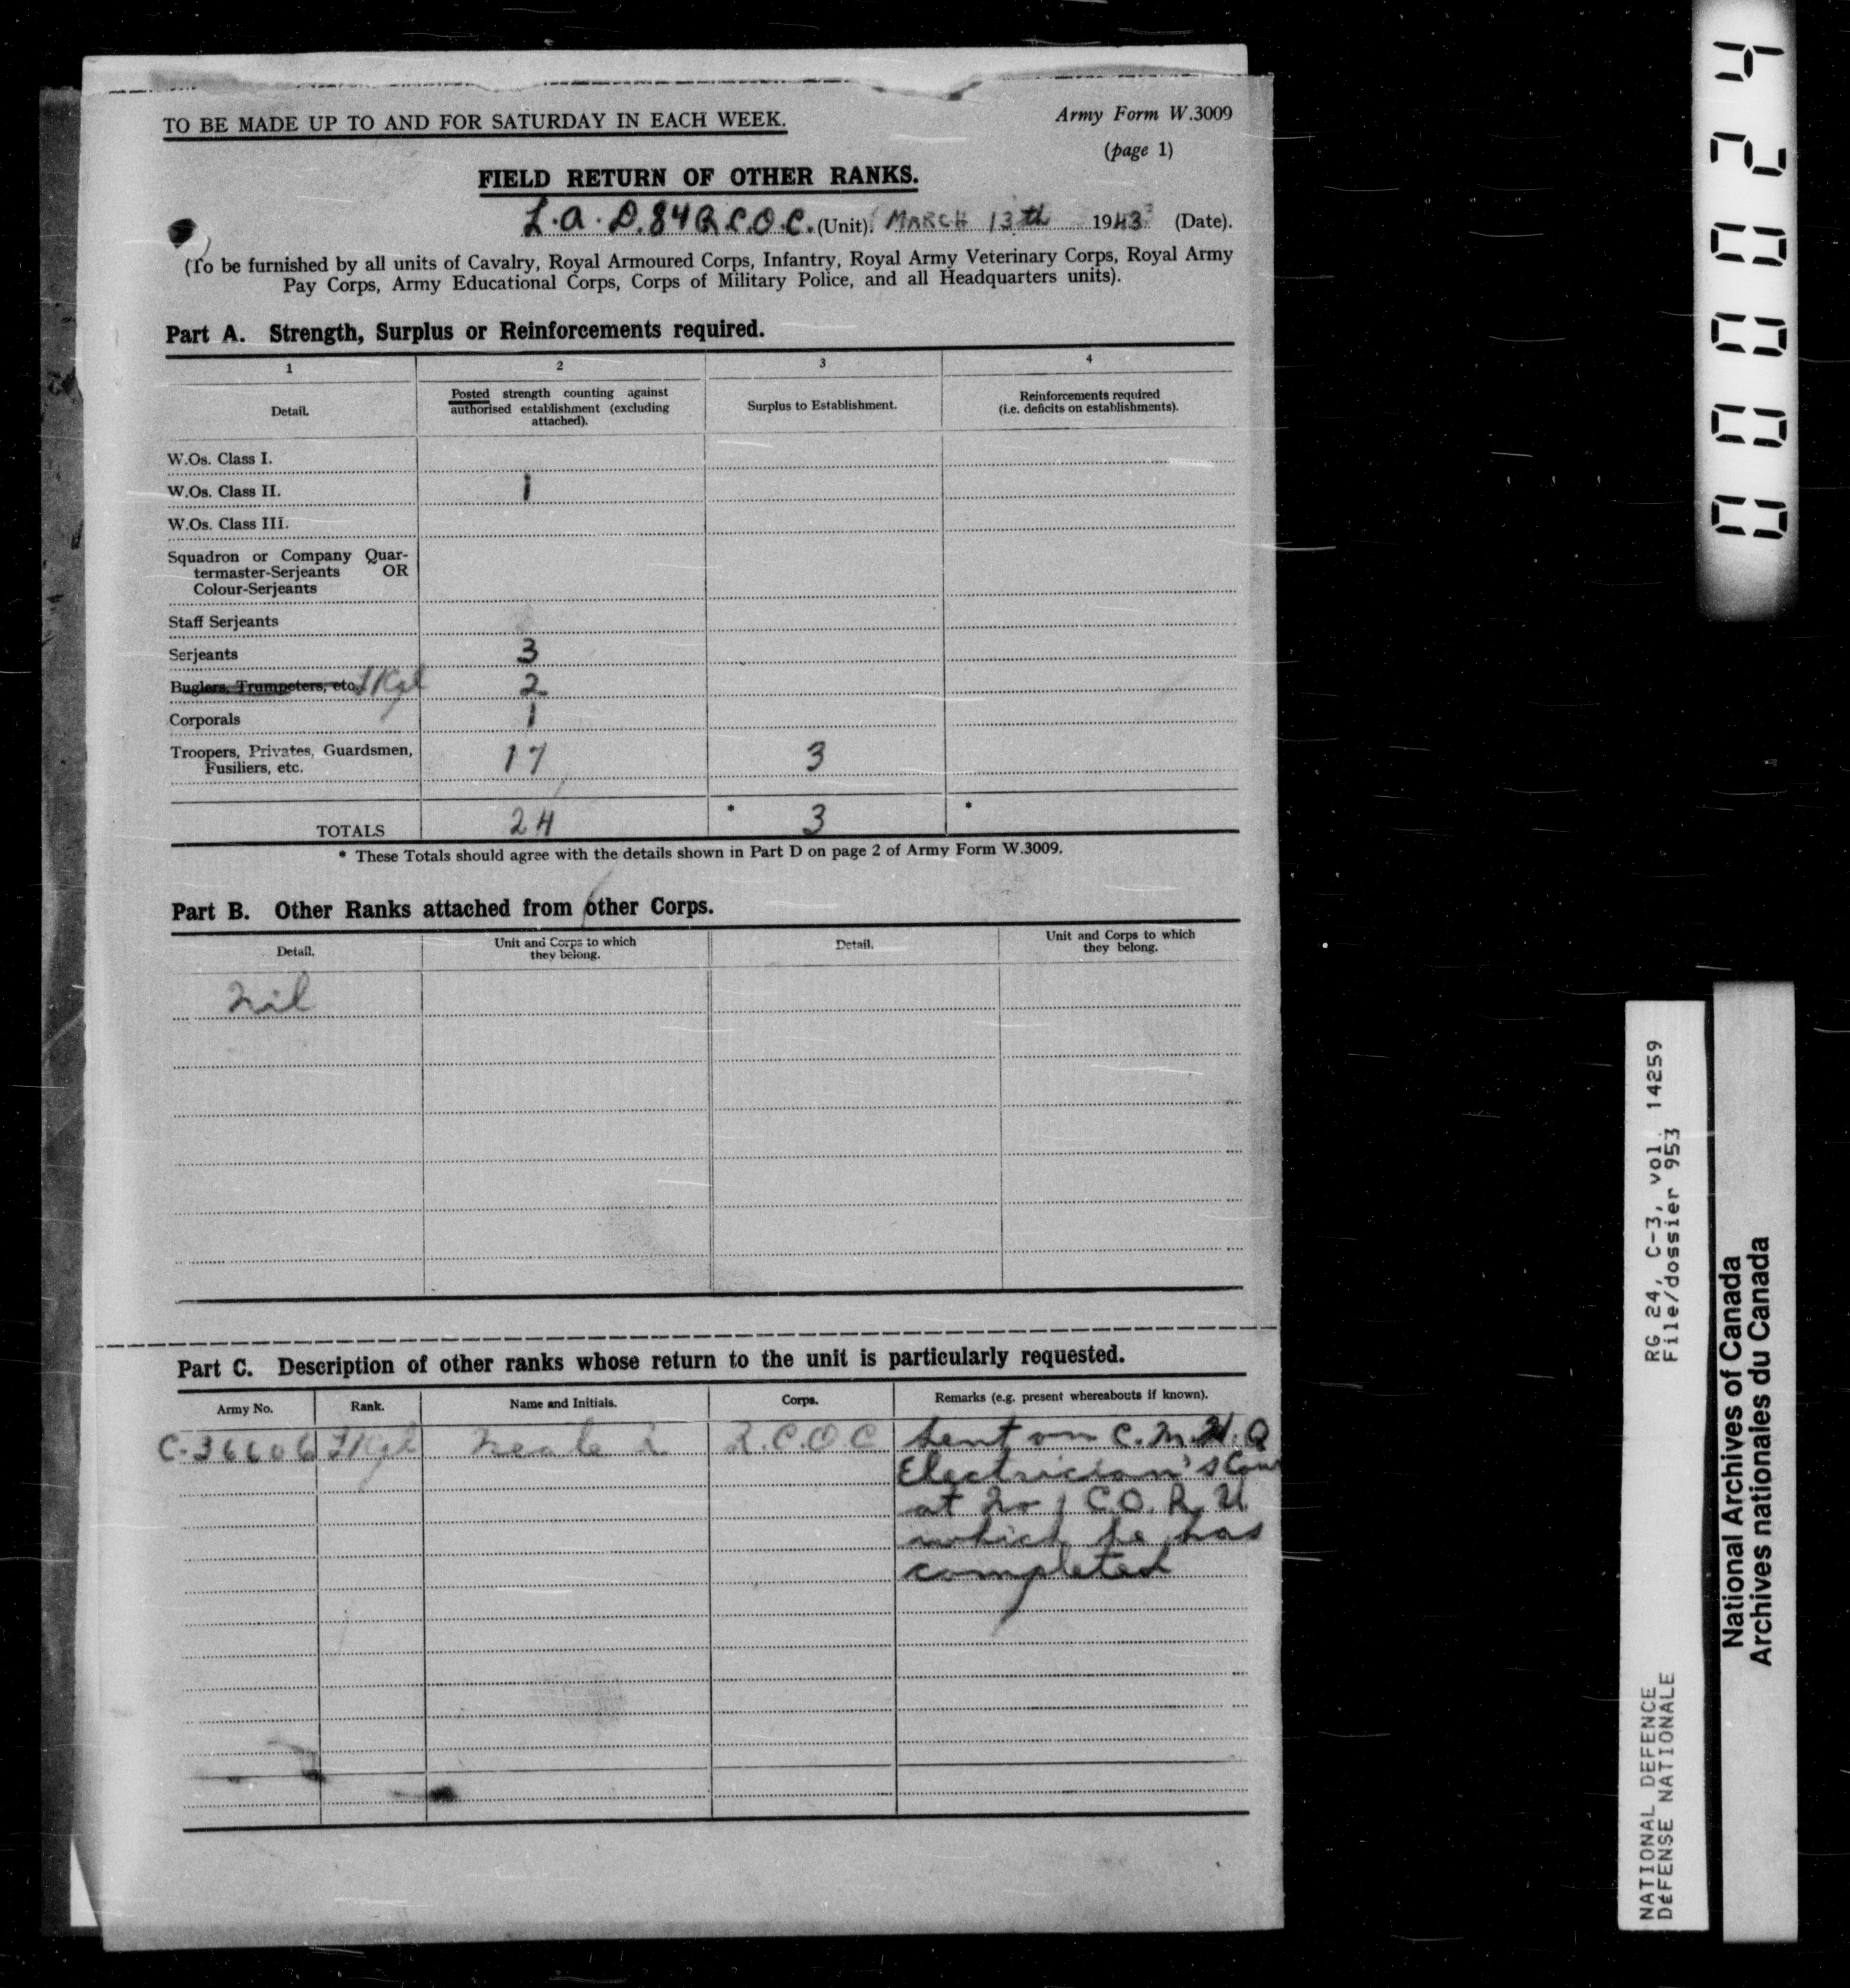 TO BE MADE UP TO AND FOR SATURDAY IN EACH WEEK.
Army Form W.3009
(page 1)
FIELD RETURN OF OTHER RANKS.
L.A.D. 84 R.C.O.C. (Unit). MARCH 13th 1943 (Date).
(To be furnished by all units of Cavalry, Royal Armoured Corps, Infantry, Royal Army Veterinary Corps, Royal Army
Pay Corps, Army Educational Corps, Corps of Military Police, and all Headquarters units).
Part A. Strength, Surplus or Reinforcements required.
1 2 3 4
Detail.
Posted strength counting against
authorised establishment (excluding
attached).
Surplus to Establishment.
Reinforcements required
(i.e. deficits on establishments).
W.Os. Class I.
W.Os. Class II. 1
W.Os. Class III.
Squadron or Company Quar-
termaster-Serjeants OR
Colour-Serjeants
Staff Serjeants
Serjeants 3
Buglers, Trumpeters, etc. L/Cpl 2
Corporals 1
Troopers, Privates, Guardsmen,
Fusiliers, etc. 17 3
TOTALS 24 * 3 *
* These Totals should agree with the details shown in Part D on page 2 of Army Form W.3009.
Part B. Other Ranks attached from other Corps.
Detail.
Unit and Corps to which
they belong.
Detail.
Unit and Corps to which
they belong.
Nil
Part C. Description of other ranks whose return to the unit is particularly requested.
Army No. Rank. Name and Initials. Corps. Remarks (e.g. present whereabouts if known).
C-36606 L/Cpl Neale R.C.O.C Sent on C.M.H.Q
Electrician's
at No 1 C.O.R.U.
which he has
completed
00024
RG 24, C-3, vol. 14259
File/dossier 953
NATIONAL DEFENCE
DéFENSE NATIONALE
National Archives of Canada
Archives nationales du Canada